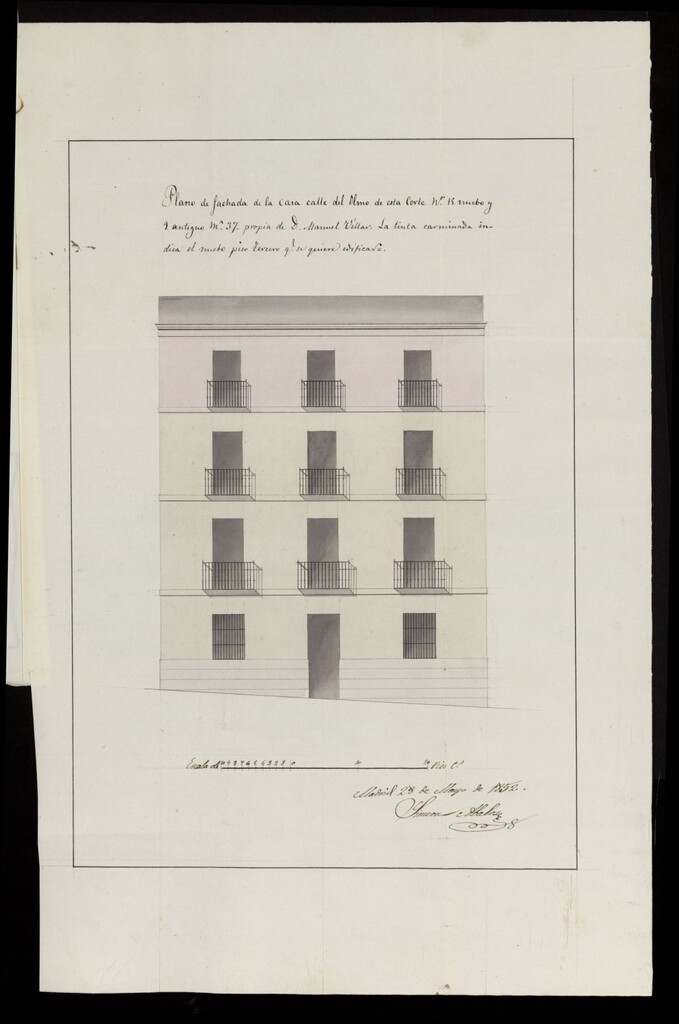 Plano de fachada de la Casa calle del Olmo de esta Corte Nº 15 nuebo y
9 antiguo Mª 37. propia de D. Manuel Villar. La tinta carminada in-
dica el nuebo piso tercero q.e se quiere edificarse.
Escala de
Pies C.s
Madrid 28 de Mayo de 1852.
Simeon